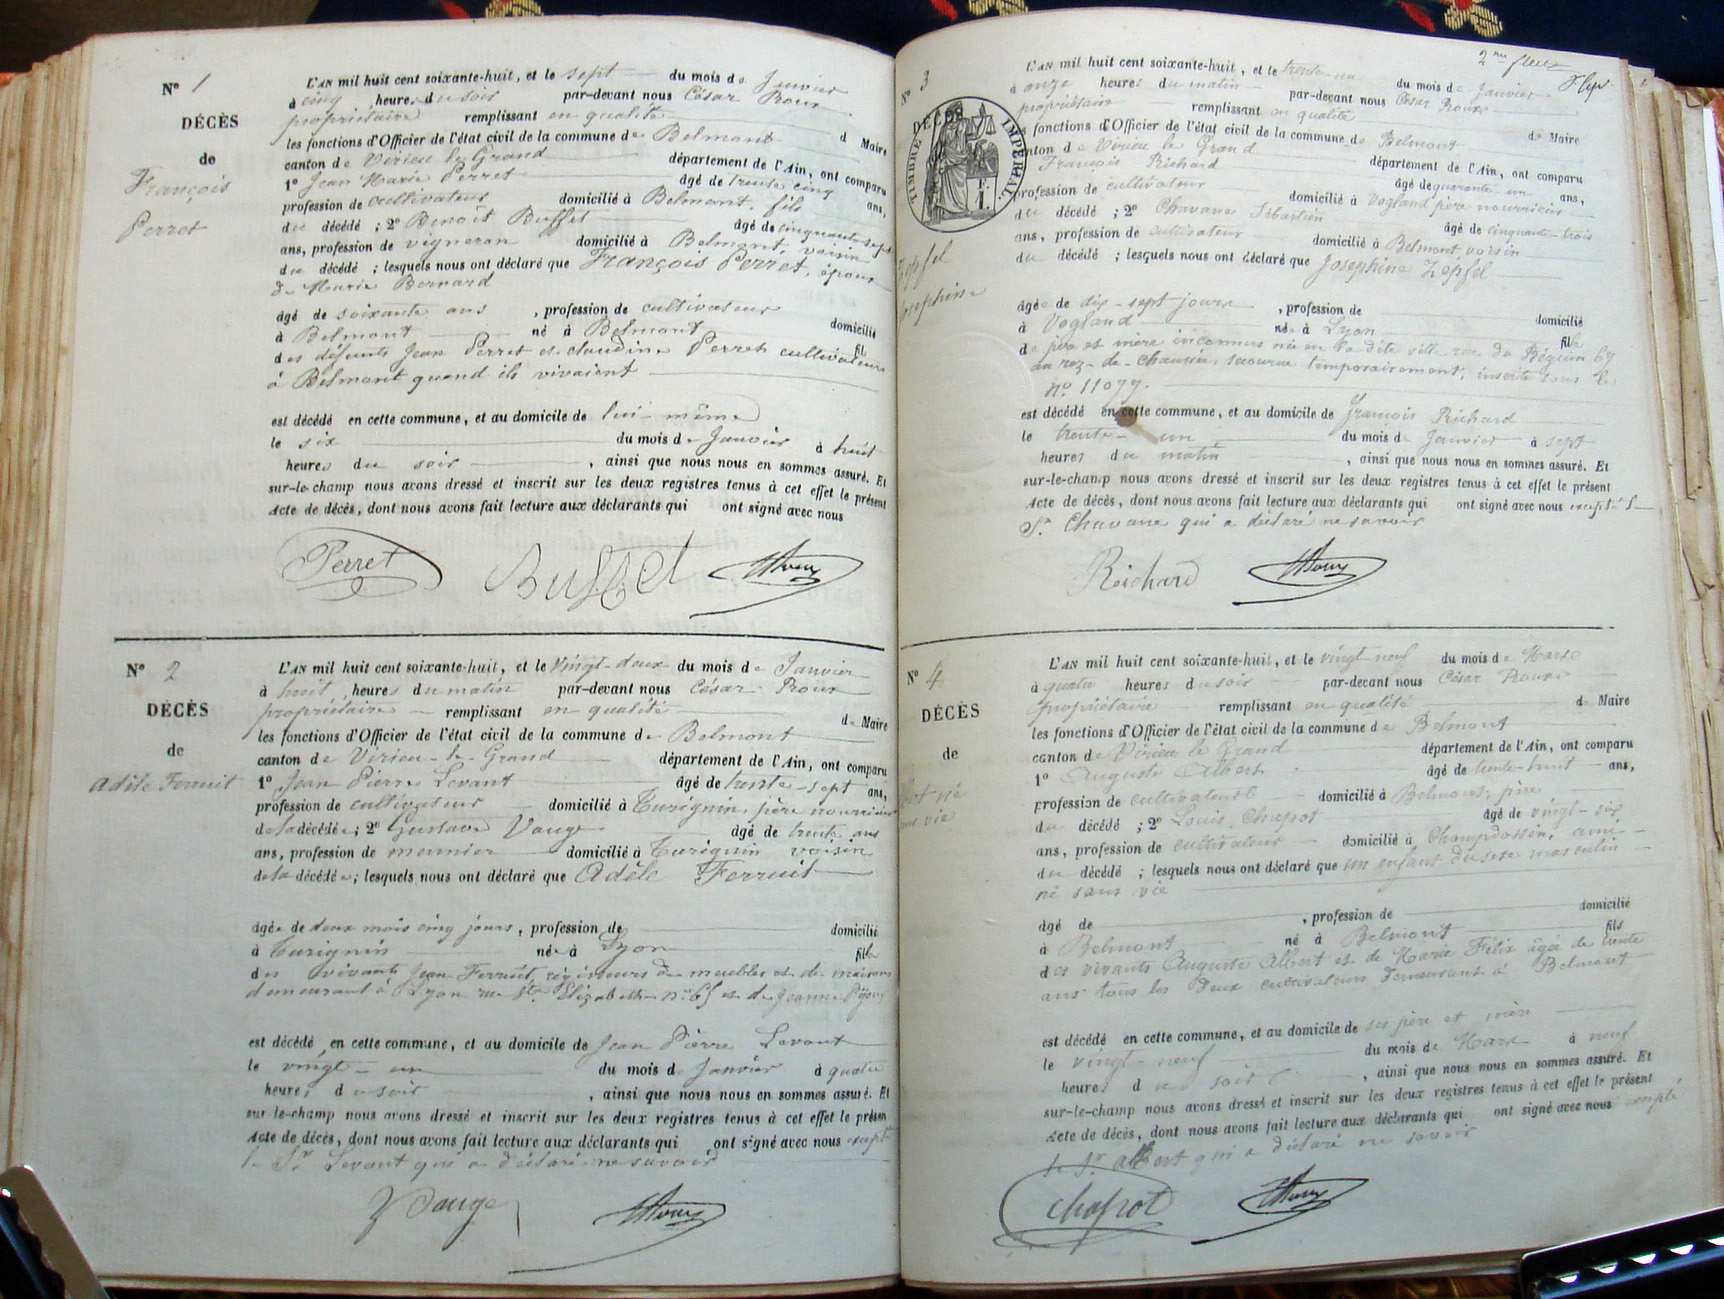 Nº 1
DÉCÈS
de
François
Perret
L'AN mil huit cent soixante-huit, et le sept du mois de Janvier
à cinq heures du soir par-devant nous César Roux
propriétaire remplissant en qualité de Maire
les fonctions d'Officier de l'état civil de la commune de Belmont
canton de Virieu le Grand département de l'Ain, ont comparu
1º Jean Marie Perret âgé de trente cinq ans,
profession de cultivateur domicilié à Belmont, fils
du décédé ; 2º Benoit Buffet âgé de cinquante-sept
ans, profession de vigneron domicilié à Belmont, voisin
du décédé ; lesquels nous ont déclaré que François Perret, époux
de Marie Bernard
âgé de soixante ans , profession de cultivateur domicilié
à Belmont né à Belmont fils
des défunts Jean Perret et Claudine Perret cultivateurs
à Belmont quand ils vivaient
est décédé en cette commune, et au domicile de lui-même
le six du mois de Janvier à huit
heures du soir , ainsi que nous nous en sommes assuré. Et
sur-le-champ nous avons dressé et inscrit sur les deux registres tenus à cet effet le présent
Acte de décès, dont nous avons fait lecture aux déclarants qui ont signé avec nous
Perret Buffet Roux
Nº 2
DÉCÈS
de
Adèle Ferruit
L'AN mil huit cent soixante-huit, et le vingt-deux du mois de Janvier
à huit heures du matin par-devant nous César Roux
propriétaire remplissant en qualité de Maire
les fonctions d'Officier de l'état civil de la commune de Belmont
canton de Virieu-le-Grand département de l'Ain, ont comparu
1º Jean Pierre Levant âgé de trente-sept ans,
profession de cultivateur domicilié à Turignin, père nourricier
de la décédée ; 2º Gustave Vauge âgé de trente ans
ans, profession de meunier domicilié à Turignin voisin
de la décédée ; lesquels nous ont déclaré que Adèle Ferruit
âgée de deux mois cinq jours, profession de domicilié
à Turignin née à Lyon fille
des vivants Jean Ferruit, régisseurs de meubles et de maisons
demeurant à Lyon rue Ste Elizabeth nº 65 et de Jeanne
est décédé en cette commune, et au domicile de Jean Pierre Levant
le vingt-un du mois de Janvier à quatre
heures du soir , ainsi que nous nous en sommes assuré. Et
sur-le-champ nous avons dressé et inscrit sur les deux registres tenus à cet effet le présen
Acte de décès, dont nous avons fait lecture aux déclarants qui ont signé avec nous excepté
le Sr Levant qui a déclaré ne savoir
Vauge Roux
2me
Nº 3
TIMBRE IMPÉRIAL
DÉCÈS
Zopfel
Josephine
L'AN mil huit cent soixante-huit, et le trente-un du mois de Janvier
à onze heures du matin par-devant nous César Roux
propriétaire remplissant en qualité de Maire
les fonctions d'Officier de l'état civil de la commune de Belmont
canton de Virieu le Grand département de l'Ain, ont comparu
François Richard âgé de quarante un ans,
profession de cultivateur domicilié à Vogland père nourricier
du décédé ; 2º Chavane Sébastien âgé de cinquante-trois
ans, profession de cultivateur domicilié à Belmont, voisin
du décédé ; lesquels nous ont déclaré que Josephine Zopfel
âgée de dix-sept jours , profession de domicilié
à Vogland née à Lyon fille
de père et mère inconnus née en la dite ville rue du Béguin 69
au rez-de-chaussée, secourue temporairement, inscrite sous le
nº 11077.
est décédé en cette commune, et au domicile de François Richard
le trente-un du mois de Janvier à sept
heures du matin , ainsi que nous nous en sommes assuré. Et
sur-le-champ nous avons dressé et inscrit sur les deux registres tenus à cet effet le présent
Acte de décès, dont nous avons fait lecture aux déclarants qui ont signé avec nous excepté le
Sr. Chavane qui a déclaré ne savoir
Richard Roux
Nº 4
DÉCÈS
de
né
sans vie
L'AN mil huit cent soixante-huit, et le vingt neuf du mois de Mars
à quatre heures du soir par-devant nous César Roux
propriétaire remplissant en qualité de Maire
les fonctions d'Officier de l'état civil de la commune de Belmont
canton de Virieu le Grand département de l'Ain, ont comparu
1º Auguste Albert âgé de trente-huit ans,
profession de cultivateur domicilié à Belmont, père
du décédé ; 2º Louis Chapot âgé de vingt-six
ans, profession de cultivateur domicilié à Champdossin, ami
du décédé ; lesquels nous ont déclaré que un enfant du sexe masculin
né sans vie
âgé de , profession de domicilié
à Belmont né à Belmont fils
des vivants Auguste Albert et de Marie Félix âgée de trente
ans tous les deux cultivateurs demeurant à Belmont
est décédé en cette commune, et au domicile de ses père et mère
le vingt-neuf du mois de Mars à neuf
heures du soir , ainsi que nous nous en sommes assuré. Et
sur-le-champ nous avons dressé et inscrit sur les deux registres tenus à cet effet le présent
Acte de décès, dont nous avons fait lecture aux déclarants qui ont signé avec nous excepté
le Sr Albert qui a déclaré ne savoir
Chapot Roux